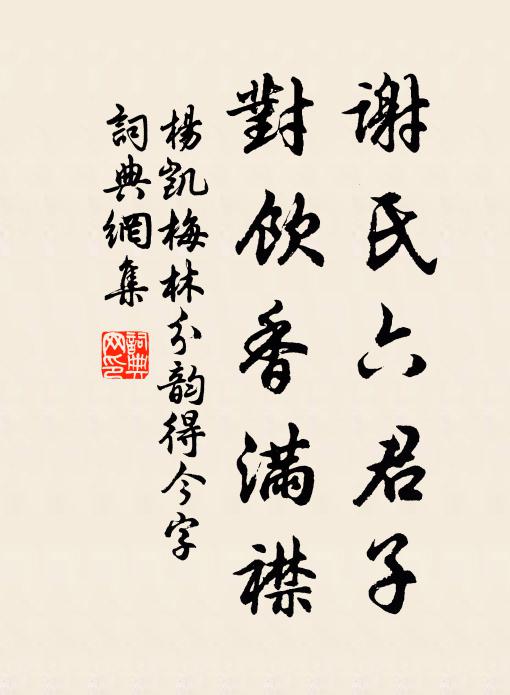 谢氏六君子
對飲香满襟
楊凯梅林分韵得今字
詞典網集
詞典网印